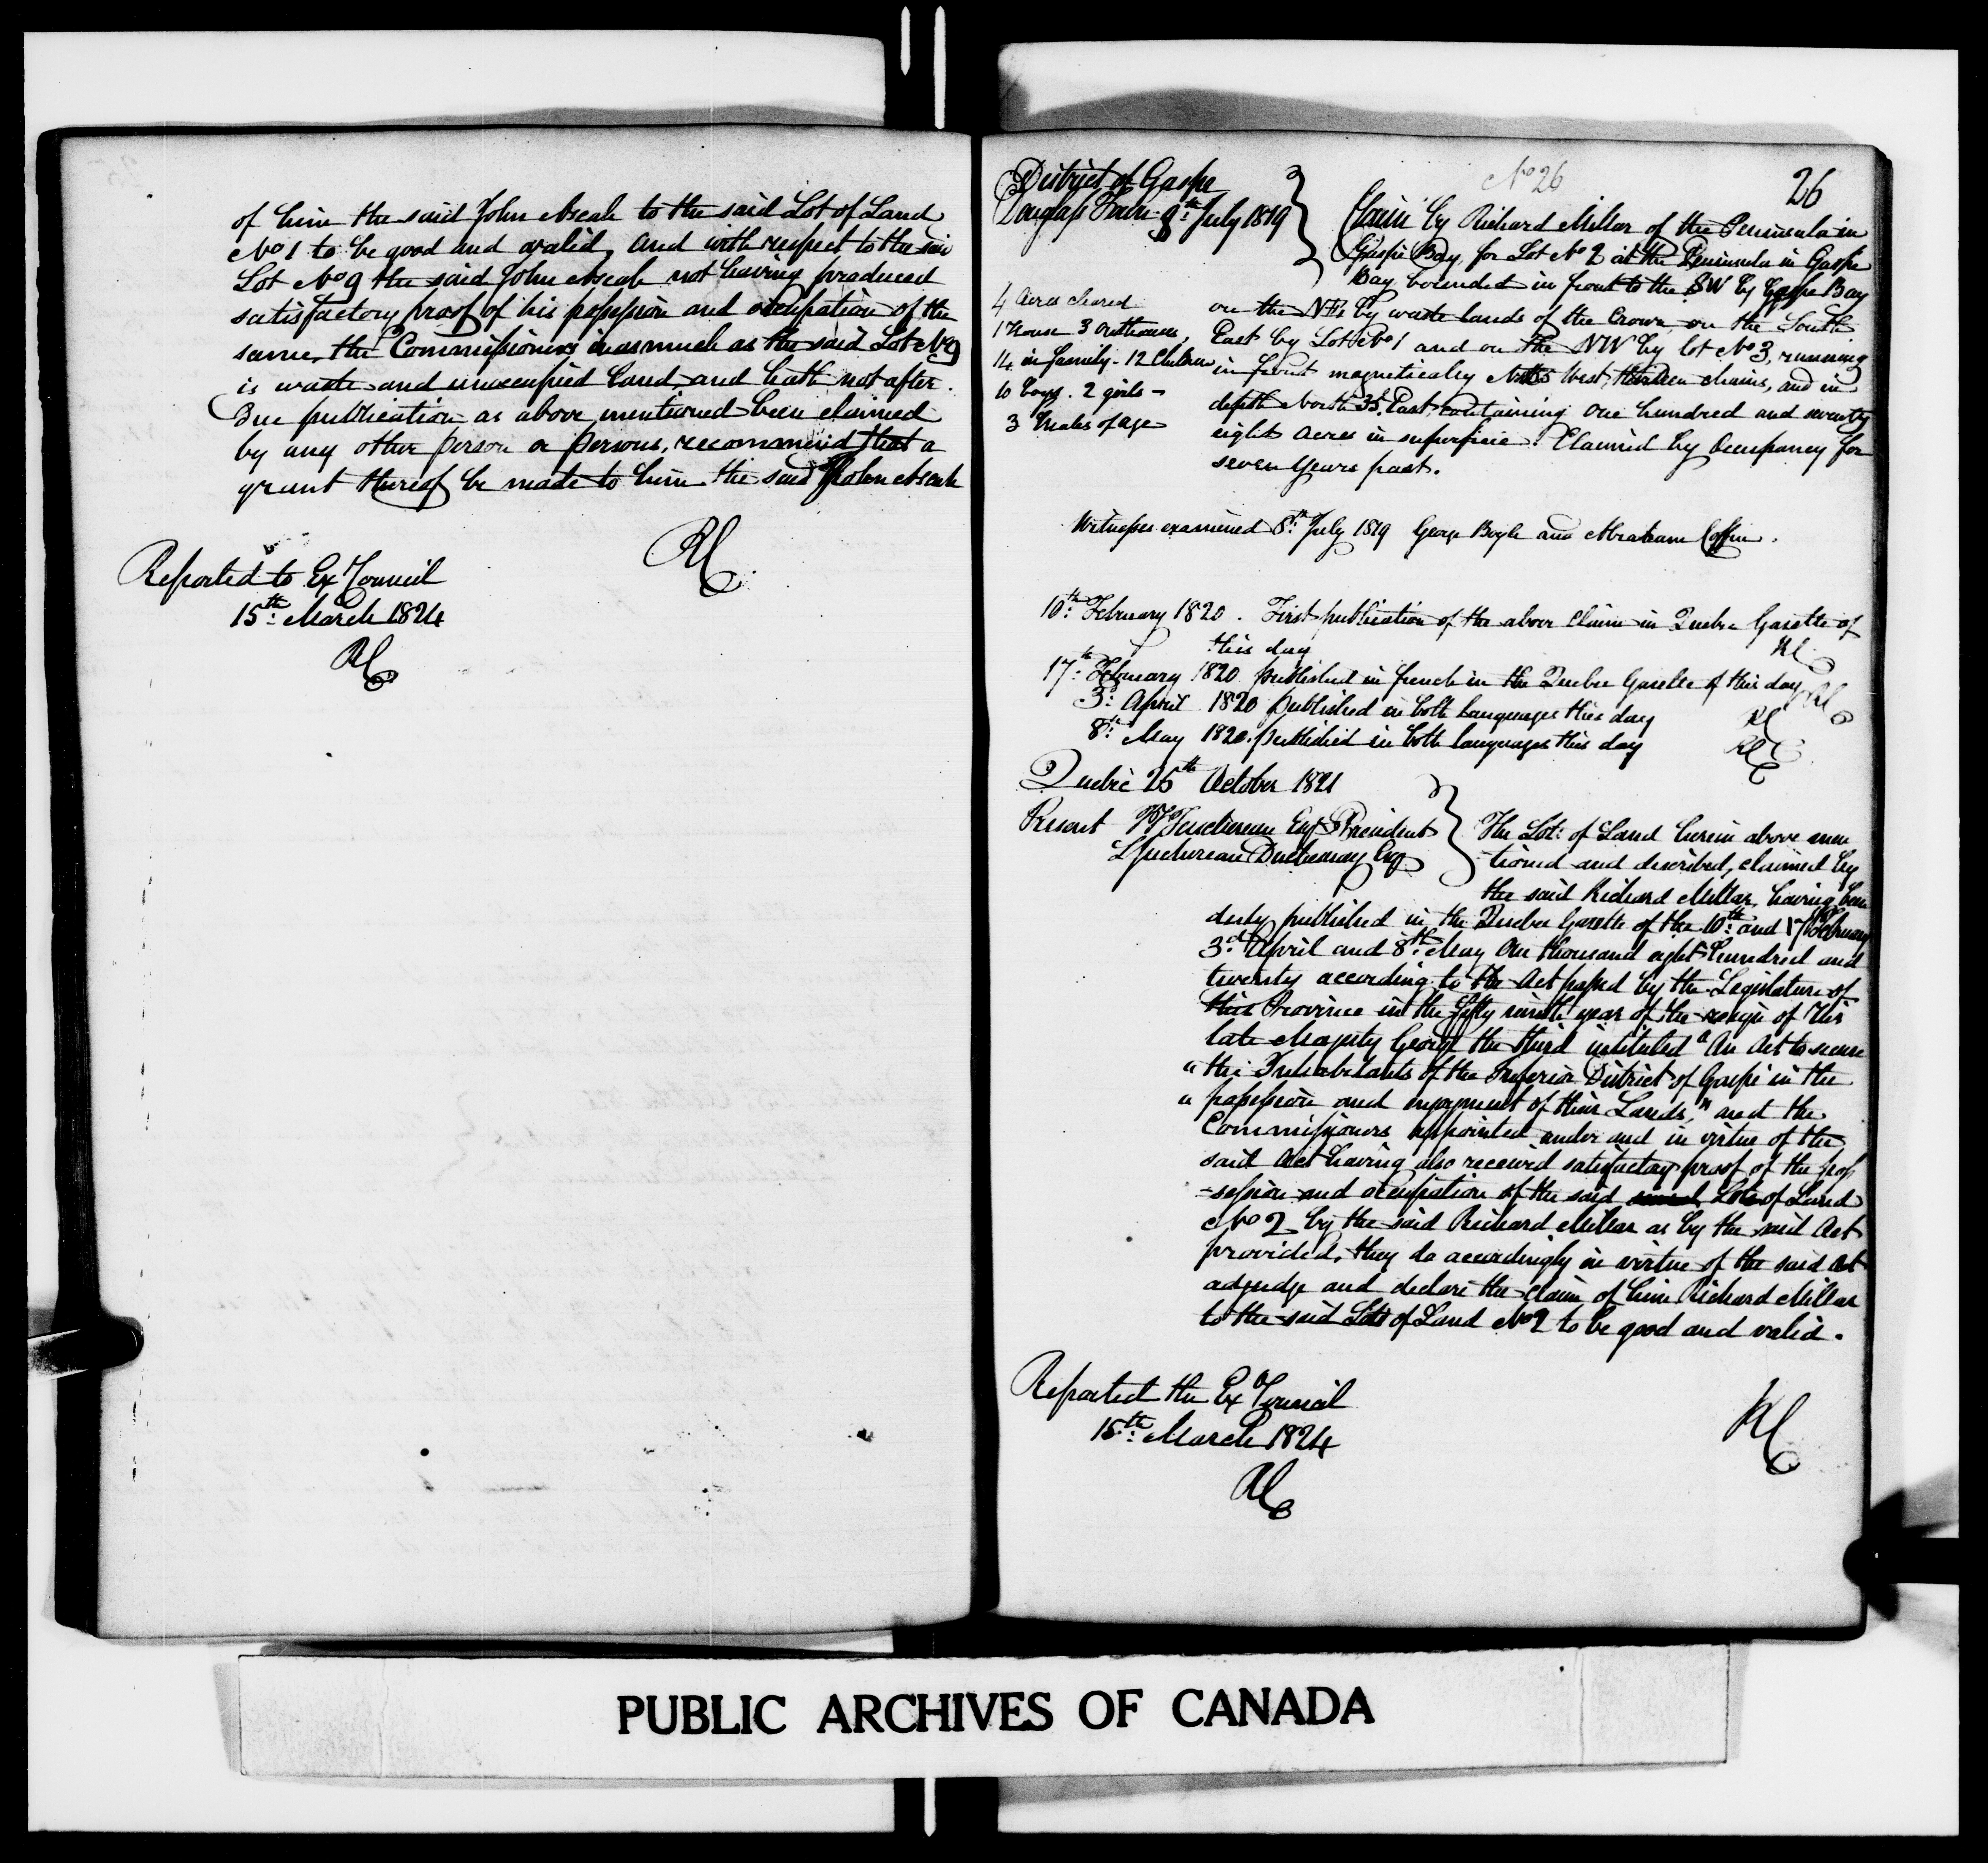 of him the said John Ascah to the said Lot of Land
No 1 to be good and valid, and with respect to the said
Lot No 9 the said John Ascah not having produced
satisfactory proof of his possession and occupation of the
same, the Commissioners inasmuch as the said Lot No 9
is waste and unoccupied Land, and hath not after
due publication as above mentioned been claimed
by any other person or persons, recommend that a
grant thereof be made to him the said John Ascah
RC
Reported to Ex Council
15th March 1824
RC
No 26
26
District of Gaspe
Douglass Town 9th July 1819
Claim by Richard Millar of the Peninsula in
Gaspe Bay, for Lot No 2 at the Peninsula in Gaspe
Bay bounded in front to the SW by Gaspe Bay
4 Acres cleared
on the NE by waste lands of the Crown, on the South
1 House 3 outhouses
East by Lot No 1 and on the NW by lot No 3, running
14 in family - 12 Children
in front magnetically West, thirteen chains, and in
10 boys. 2 girls -
depth North 35. East, containing one hundred and seventy
3 Males of age
eight acres in superficie. Claimed by Occupancy for
seven years past.
Witnesses examined 8th July 1819 George Boyle and Abraham Coffin.
10th February 1820. First publication of the above Claim in Quebec Gazette of
this day RC
17th February 1820 published in french in the Quebec Gazette of this day RC
3d April 1820 published in both Languages this day RC
8th May 1820. published in both languages this day RC
Quebec 25th October 1821
Present Taschereau Esqr President
L Juchereau Duchesnay Esqr
The Lot of Land herein above men
-tioned and described, claimed by
the said Richard Millar, having been
duly published in the Quebec Gazette of the 10th and 17th February
3d April and 8th May One thousand eight hundred and
twenty according to the Act passed by the Legislature of
this Province in the fifty ninth year of the reign of His
late Majesty George the third intituled "An Act to secure
"the Inhabitants of the Inferior District of Gaspé in the
"possession and enjoyment of their Lands," and the
Commissioners appointed under and in virtue of the
said Act having also received satisfactory proof of the pos
-session and occupation of the said Lot of Land
No 2 by the said Richard Millar as by the said Act
provided, they do accordingly in virtue of the said Act
adjudge and declare the claim of him Richard Millar
to the said Lot of Land No 2 to be good and valid.
Reported the Ex Council
15th March 1824
RC
RC
PUBLIC ARCHIVES OF CANADA